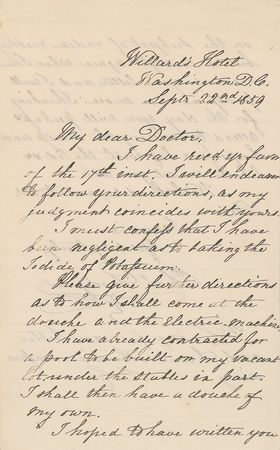 Willard's Hotel
Washington D.C.
Septr 22nd 1859
My dear Doctor,
I have recd yr favr
of the 17th inst, I will endeavr
to follow your directions, as my
judgment coincides with yours
I must confess that I have
been negligent as to taking the
Iodide of Potassium.
Please give further directions
as to how I shall come at the
douche and the Electric machine
I have already contracted for
a pool to be built on my vacant
lot, under the stables in part.
I shall then have a douche of
my own.
I hoped to have written you